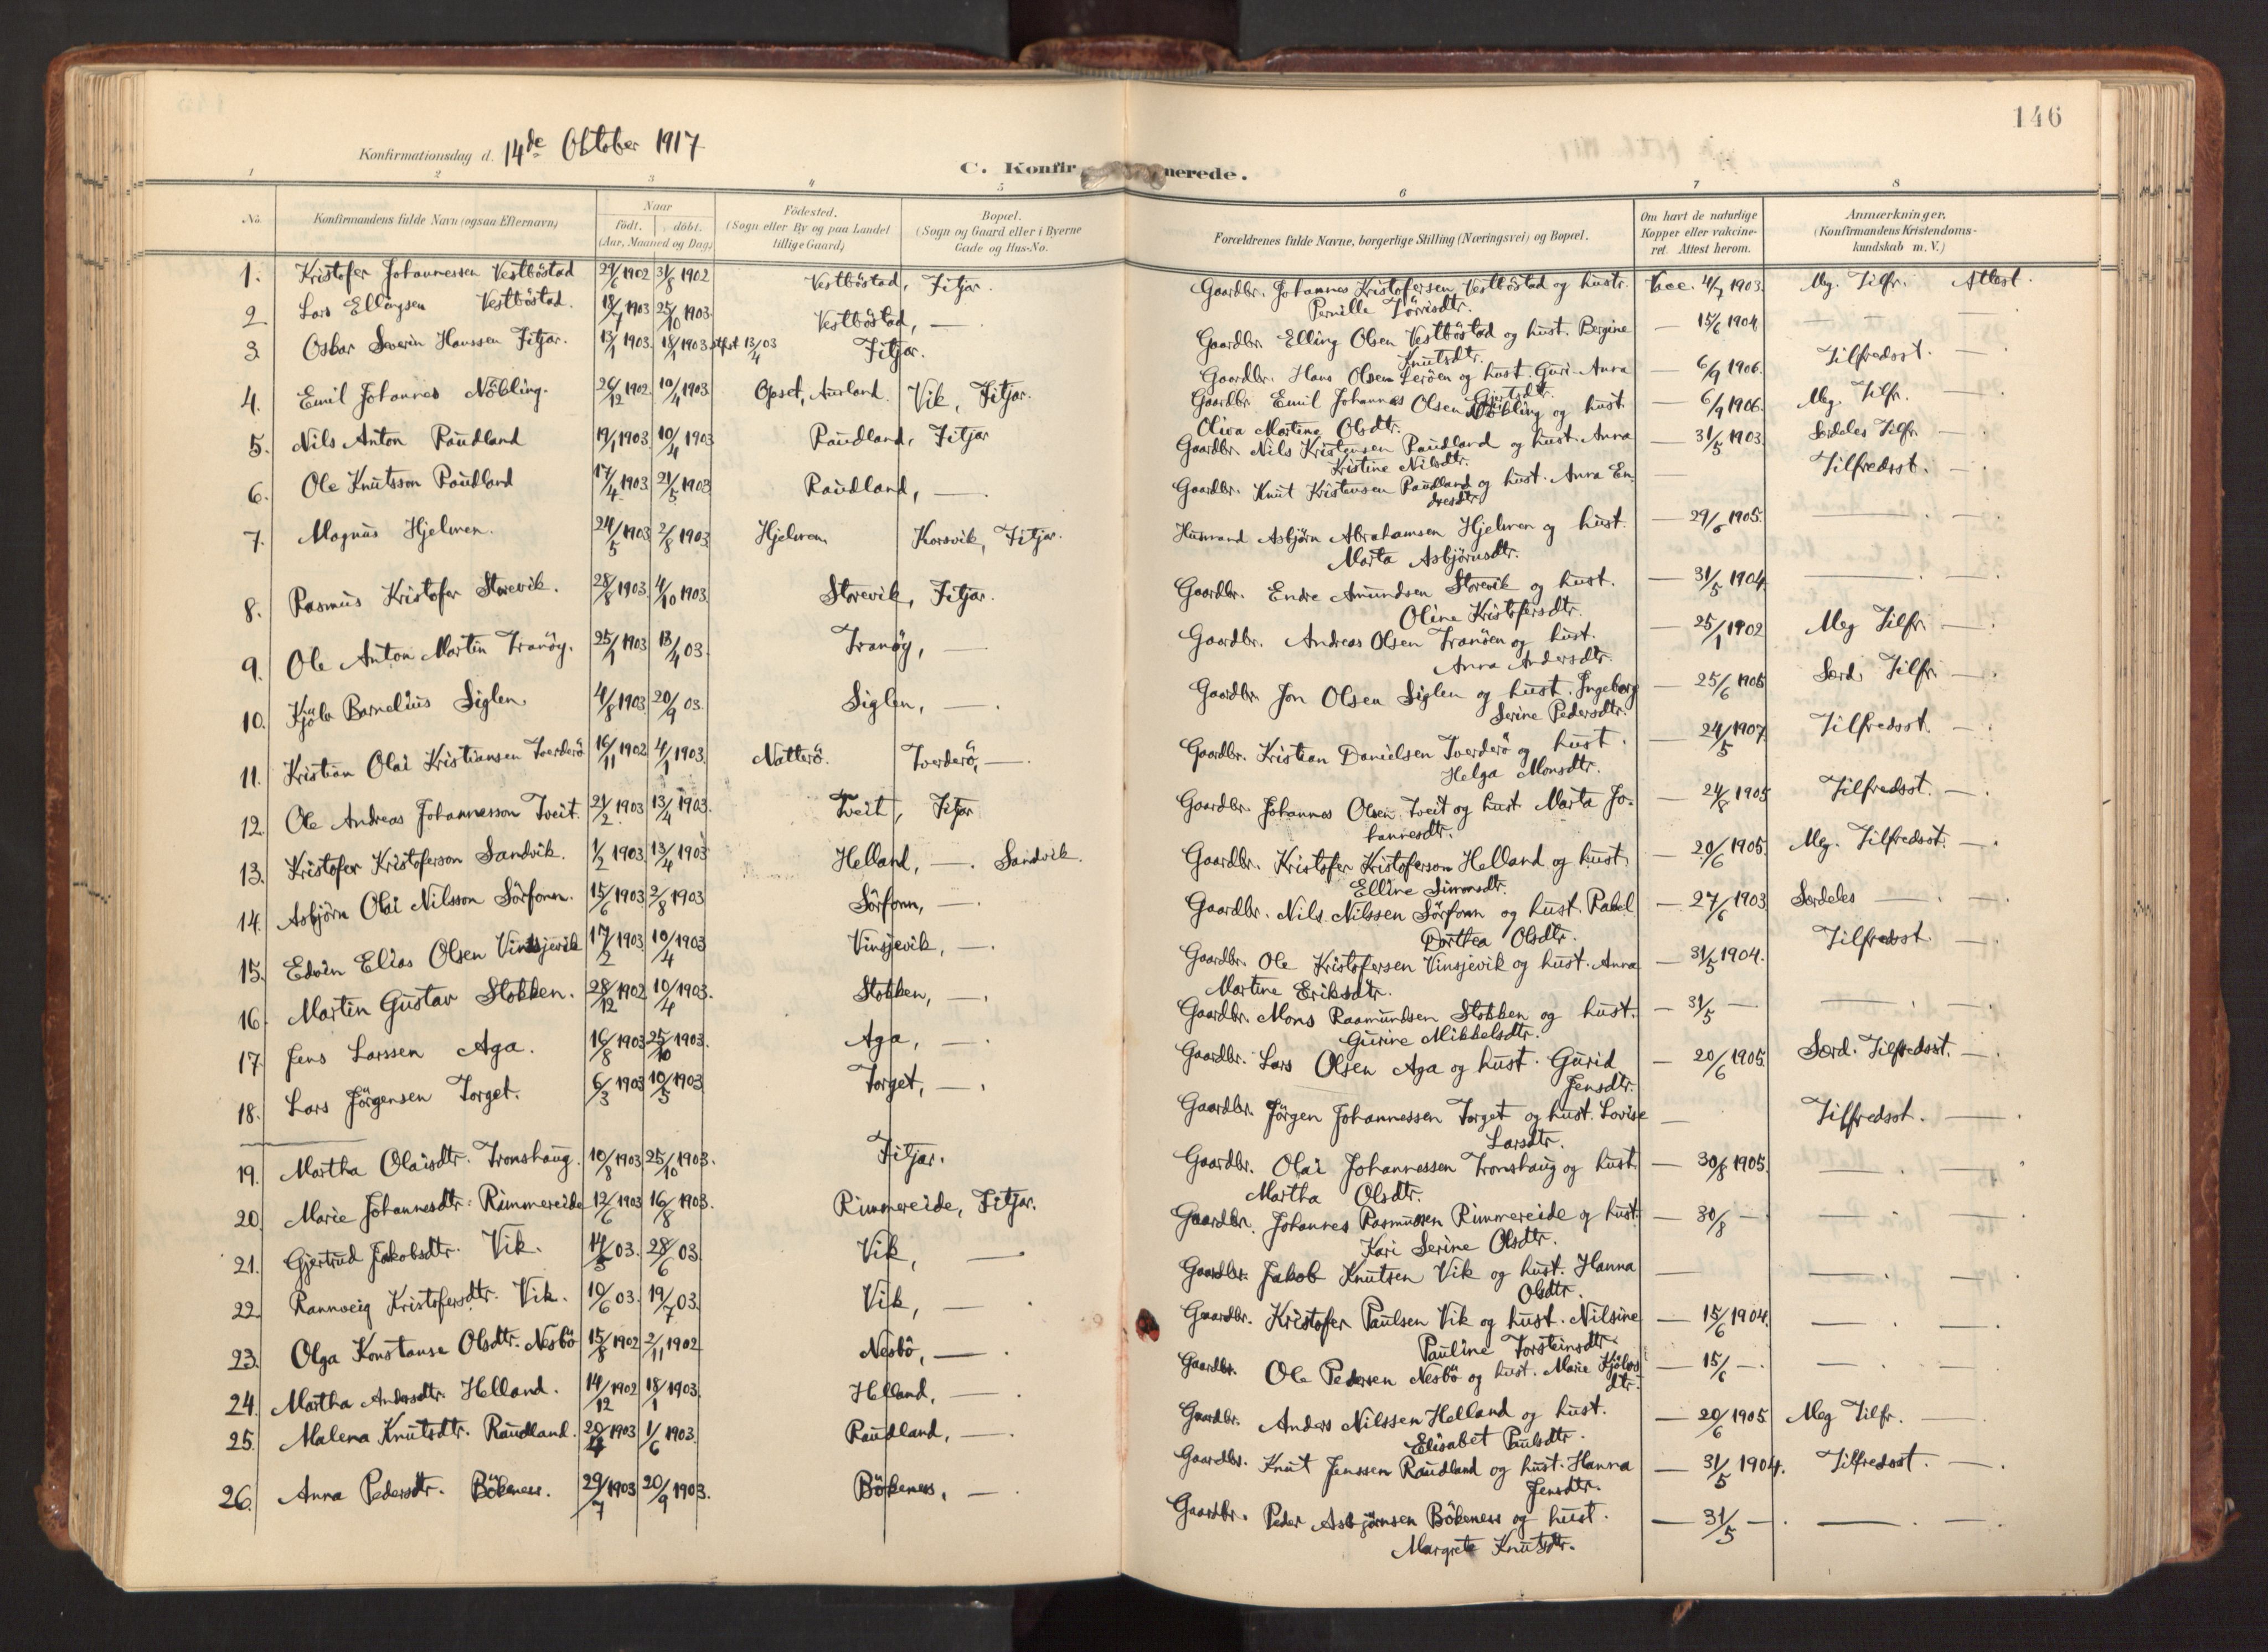 146
Konfirmationsdag d. 14de Oktober 1917
C. Konfir nerede.
1 2 3 4 5 6 7 8
No. Konfirmandens fulde Navn (ogsaa Efternavn) Naar født. døbt. (Aar, Maaned og Dag) Födested. (Sogn eller By og paa Landet tillige Gaard) Bopæl. (Sogn og Gaard eller i Byerne Gade og Hus-No. Forældrenes fulde Navne, borgerlige Stilling (Næringsvei) og Bopæl. Om havt de naturlige Kopper eller vakcineret. Attest herom. Anmærkninger. (Konfirmandens Kristendomskundskab m. V.)
1. Kristofer Johannessen Vestböstad 29/6 1902 31/8 1902 Vestböstad, Fitjar. Gaardbr. Johannes Kristofersen Vestböstad og hustr. Vacc. 4/7 1903 Meg. Tilfr. Attest.
Pernille Törrisdtr.
2 Lars Ellingsen Vestböstad. 18/7 1903 25/10 1903. Vestböstad, — . Gaardbr. Elling Olsen Vestböstad og hust. Bergine — 15/6 1904 — — —
Knutsdtr.
3 Oskar Severin Hanssen Fitjar. 13/1 1903. 18/1 1903. stfst 13/4 03 Fitjar. Gaardbr. Hans Olsen Leröen og hust. Guri Anna — 6/9 1906. Tilfredsst. —
4. Emil Johannes Nöbling. 26/12 1902. 10/4 1903. Opset, Aurland. Vik, Fitjar. Gaardbr. Emil Johannes Olsen Nöbling og hust. — 6/9 1906. Meg. Tilfr. —
Oliva Martine Olsdtr.
5. Nils Anton Raudland 19/1 1903. 10/4 1903 Raudland, Fitjar Gaardbr. Nils Kristensen Raudland og hust. Anna — 31/5 1903 Særdeles Tilfr. —
Kristine Nilsdtr.
6. Ole Knutsson Raudland 17/4 1903 21/5 1903 Raudland, — . Gaardbr. Knut Kristensen Raudland og hust. Anna En- — Tilfredsst. —
dresdtr.
7. Magnus Hjelmen. 24/5 1903 2/8 1903 Hjelmen Korsvik, Fitjar. Husmand Asbjörn Abrahamsen Hjelmen og hust. — 29/6 1905. — —
Marta Asbjörnsdtr.
8. Rasmus Kristofer Storevik. 28/8 1903. 4/10 1903. Storevik, Fitjar. Gaardbr. Endre Amundsen Storevik og hust. — 31/5 1904. — —
Oline Kristofersdtr.
9. Ole Anton Martin Tranöy. 25/1 1903 13/4 03. Tranöy, — Gaardbr. Andreas Olsen Tranöen og hust. — 25/1 1902 Meg Tilfr. —
Anna Andersdtr.
10. Kjölv Barnelius Siglen. 4/8 1903 20/9 03. Siglen, — . Gaardbr. Jon Olsen Siglen og hust. Ingeborg — 25/6 1905 Særd. Tilfr. —
Serine Pedersdtr.
11. Kristian Olai Kristiansen Tverderö 16/11 1902 4/1 1903. Natterö. Tverderö, — . Gaardbr. Kristian Danielsen Tverderö og hust. — 24/5 1907. Tilfredsst. —
Helga Monsdtr.
12. Ole Andreas Johannesson Tveit. 21/2 1903 13/4 1903. Tveit, Fitjar Gaardbr. Johannes Olsen Tveit og hust. Marta Jo- — 24/8 1905 Tilfredsst. —
hannesdtr.
13. Kristofer Kristoferson Sandvik. 1/2 1903. 13/4 1903 Helland, — . Sandvik. Gaardbr. Kristofer Kristoferson Helland og hust. — 20/6 1905. Meg. Tilfredsst. —
Elline Simonsdtr.
14. Asbjörn Olai Nilsson Sörfonn. 15/6 1903 2/8 1903 Sörfonn, — . Gaardbr. Nils Nilssen Sörfonn og hust. Rakel — 27/6 1903 Særdeles — —
Dorthea Olsdtr.
15. Edvin Elias Olsen Vinsjevik 17/2 1903. 10/4 1903 Vinsjevik, — . Gaardbr. Ole Kristofersen Vinsjevik og hust. Anna — 31/5 1904. Tilfredsst. —
Martine Eriksdtr.
16. Martin Gustav Stokken. 28/12 1902 10/4 1903. Stokken, — . Gaardbr. Mons Raamundsen Stokken og hust. — 31/5 — — —
Gurine Mikkelsdtr.
17. Jens Larssen Aga. 16/8 1903 25/10 1903. Aga, — . Gaardbr. Lars Olsen Aga og hust. Gurid — 20/6 1905. Særd. Tilfredsst. —
Jensdtr.
18. Lars Jörgensen Torget. 6/3 1903 10/5 1903 Torget, — . Gaardbr. Jörgen Johannessen Torget og hust. Lovise — Tilfredsst. —
Larsdtr.
19. Martha Olaisdtr. Tronshaug. 10/8 1903 25/10 1903. Fitjar. Gaardbr. Olai Johannessen Tronshaug og hust — 30/8 1905. — —
Martha Olsdtr.
20. Marie Johannesdtr. Rimmereide 12/6 1903 16/8 1903. Rimmereide, Fitjar. Gaardbr. Johannes Rasmussen Rimmereide og hust. — 30/8 — — —
Kari Serine Olsdtr.
21. Gjertrud Jakobsdtr. Vik. 14/5 03. 28/6 03. Vik, — Gaardbr. Jakob Knutsen Vik og hust. Hanna — — —
Olsdtr.
22. Rannveig Kristofersdtr. Vik. 10/6 03. 19/7 03. Vik, — . Gaardbr. Kristofer Paulsen Vik og hust. Nilsine — 15/6 1904. — —
Pauline Torsteinsdtr.
23. Olga Konstanse Olsdtr. Nesbö 15/8 1902 2/11 1902 Nesbö, — . Gaardbr. Ole Pedersen Nesbö og hust. Marie Kjölvs — 15/6 — — —
dtr.
24. Martha Andersdtr. Helland. 14/12 1902 18/1 1903. Helland, — . Gaardbr. Anders Nilssen Helland og hust. — 20/6 1905. Meg Tilfr. —
Elisabet Paulsdtr.
25. Malena Knutsdtr. Raudland 20/4 1903 1/6 1903. Raudland, — . Gaardbr. Knut Jenssen Raudland og hust. Hanna — 31/5 1904. Tilfredsst. —
Jensdtr.
26. Anna Pedersdtr. Bökeness. 29/7 1903 20/9 1903. Bökeness, — . Gaardbr. Peder Asbjörnsen Bökeness og hust. — 31/5 — — —
Margrete Knutsdtr.